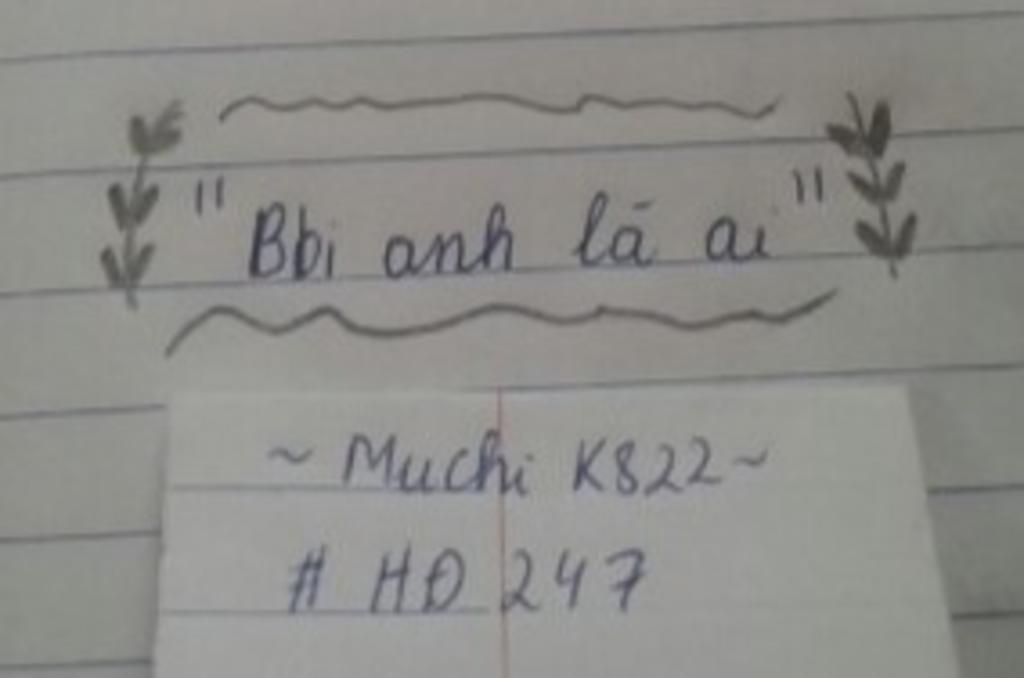 "Bbi anh là ai"
~ Muchi K822 ~
# HĐ 247